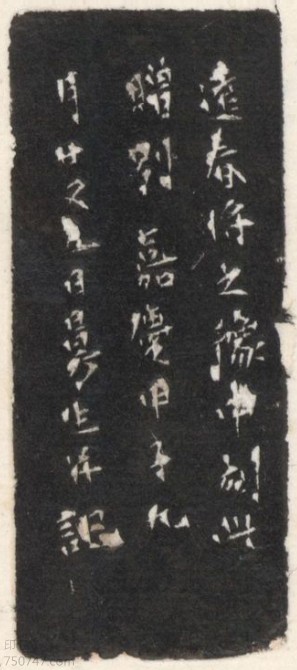 遠春將之豫中刻此
贈別嘉慶甲子九
月廿又五日曼生并記
印
.750747.com